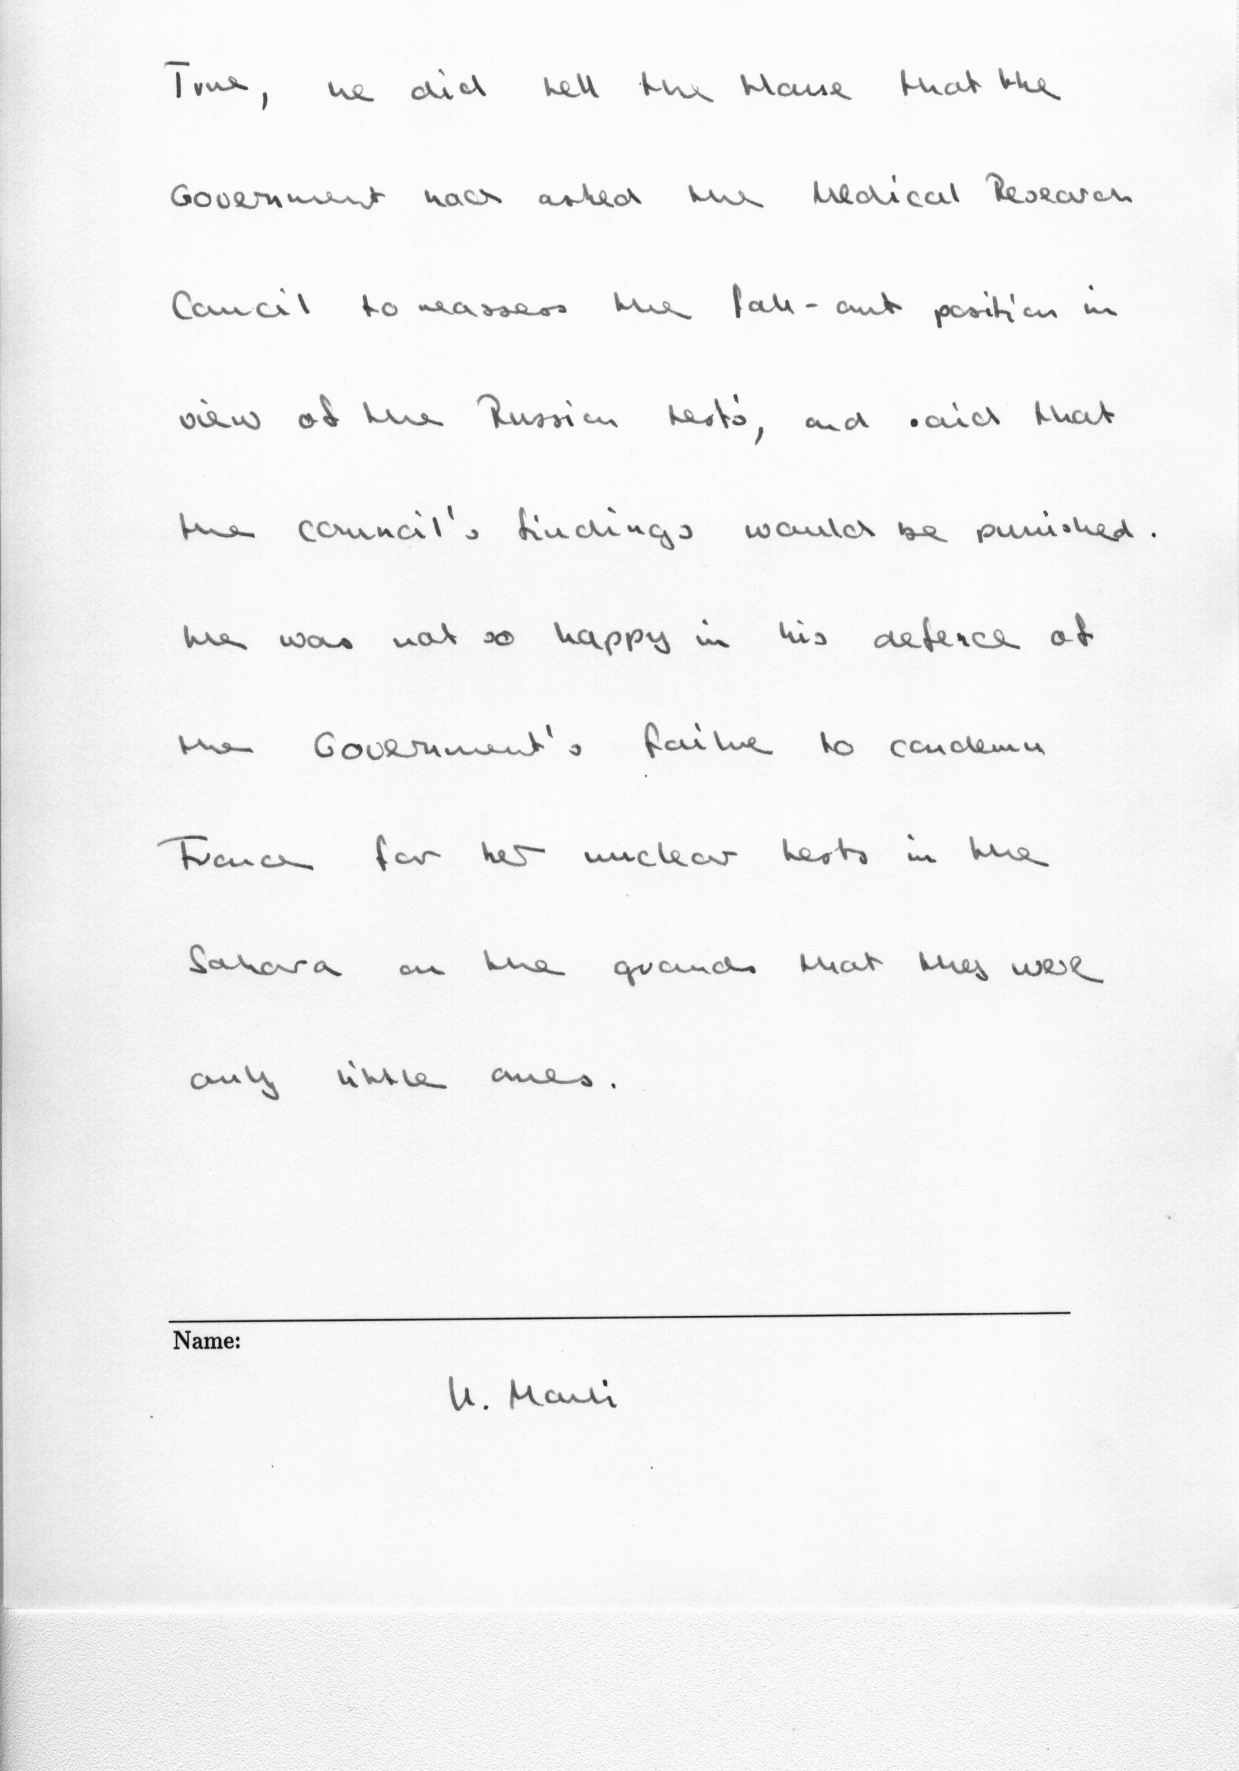 True, he did tell the House that the
Government had asked the Medical Research
Council to reassess the fall-out position in
view of the Russian tests, and said that
the council's findings would be punished.
He was not so happy in his defence of
the Government's failure to condemn
France for her nuclear tests in the
Sahara on the grounds that they were
only little ones.
Name:
U.